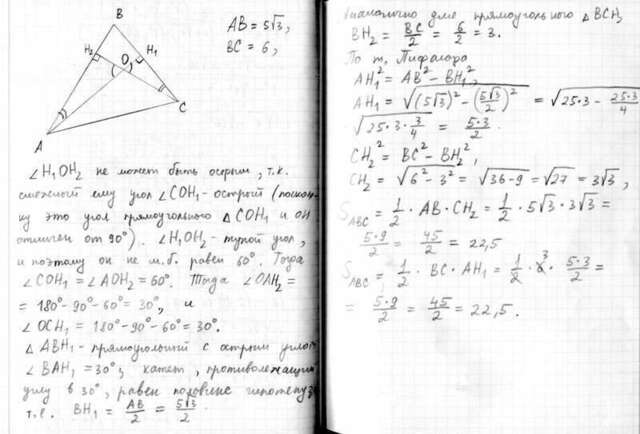 B
AB = 5√3,
BC = 6,
H₂
H₁
O
C
A
∠H₁OH₂ не может быть острым, т.к.
смежный ему угол ∠COH₁ - острый (посколь-
ку это угол прямоугольного △COH₁ и он
отличен от 90°). ∠H₁OH₂ - тупой угол,
и поэтому он не м.б. равен 60°. Тогда
∠COH₁ = ∠AOH₂ = 60°. Тогда ∠OAH₂ =
= 180° - 90° - 60° = 30°, и
∠OCH₁ = 180° - 90° - 60° = 30°.
△ABH₁ - прямоугольный с острым углом
∠BAH₁ = 30°; катет, противолежащий
углу в 30°, равен половине гипотенузы
т.е. BH₁ = AB/2 = 5√3/2.
Аналогично для прямоугольного △BCH₂
BH₂ = BC/2 = 6/2 = 3.
По т. Пифагора
AH₁² = AB² - BH₁²,
AH₁ = √((5√3)² - (5√3/2)²) = √(25·3 - 25·3/4)
√(25·3·3/4) = 5·3/2.
CH₂² = BC² - BH₂²,
CH₂ = √(6² - 3²) = √(36-9) = √27 = 3√3,
S_ABC = 1/2 · AB · CH₂ = 1/2 · 5√3 · 3√3 =
5·9/2 = 45/2 = 22,5
S_ABC = 1/2 · BC · AH₁ = 1/2 · 6̸ ³ · 5·3/2 =
= 5·9/2 = 45/2 = 22,5.